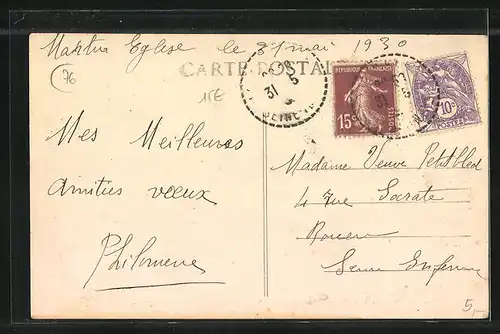 Martin Eglise le 31 mai 1930
CARTE POSTALE
76
15E
31 5
SEINE INF
REPUBLIQUE FRANÇAISE
15c
POSTES
10c
POSTES
Mes Meilleures
amities voeux
Philomene
Madame Veuve Petitbled
4 Rue Socrate
Rouen
Seine Inferieure
5,-